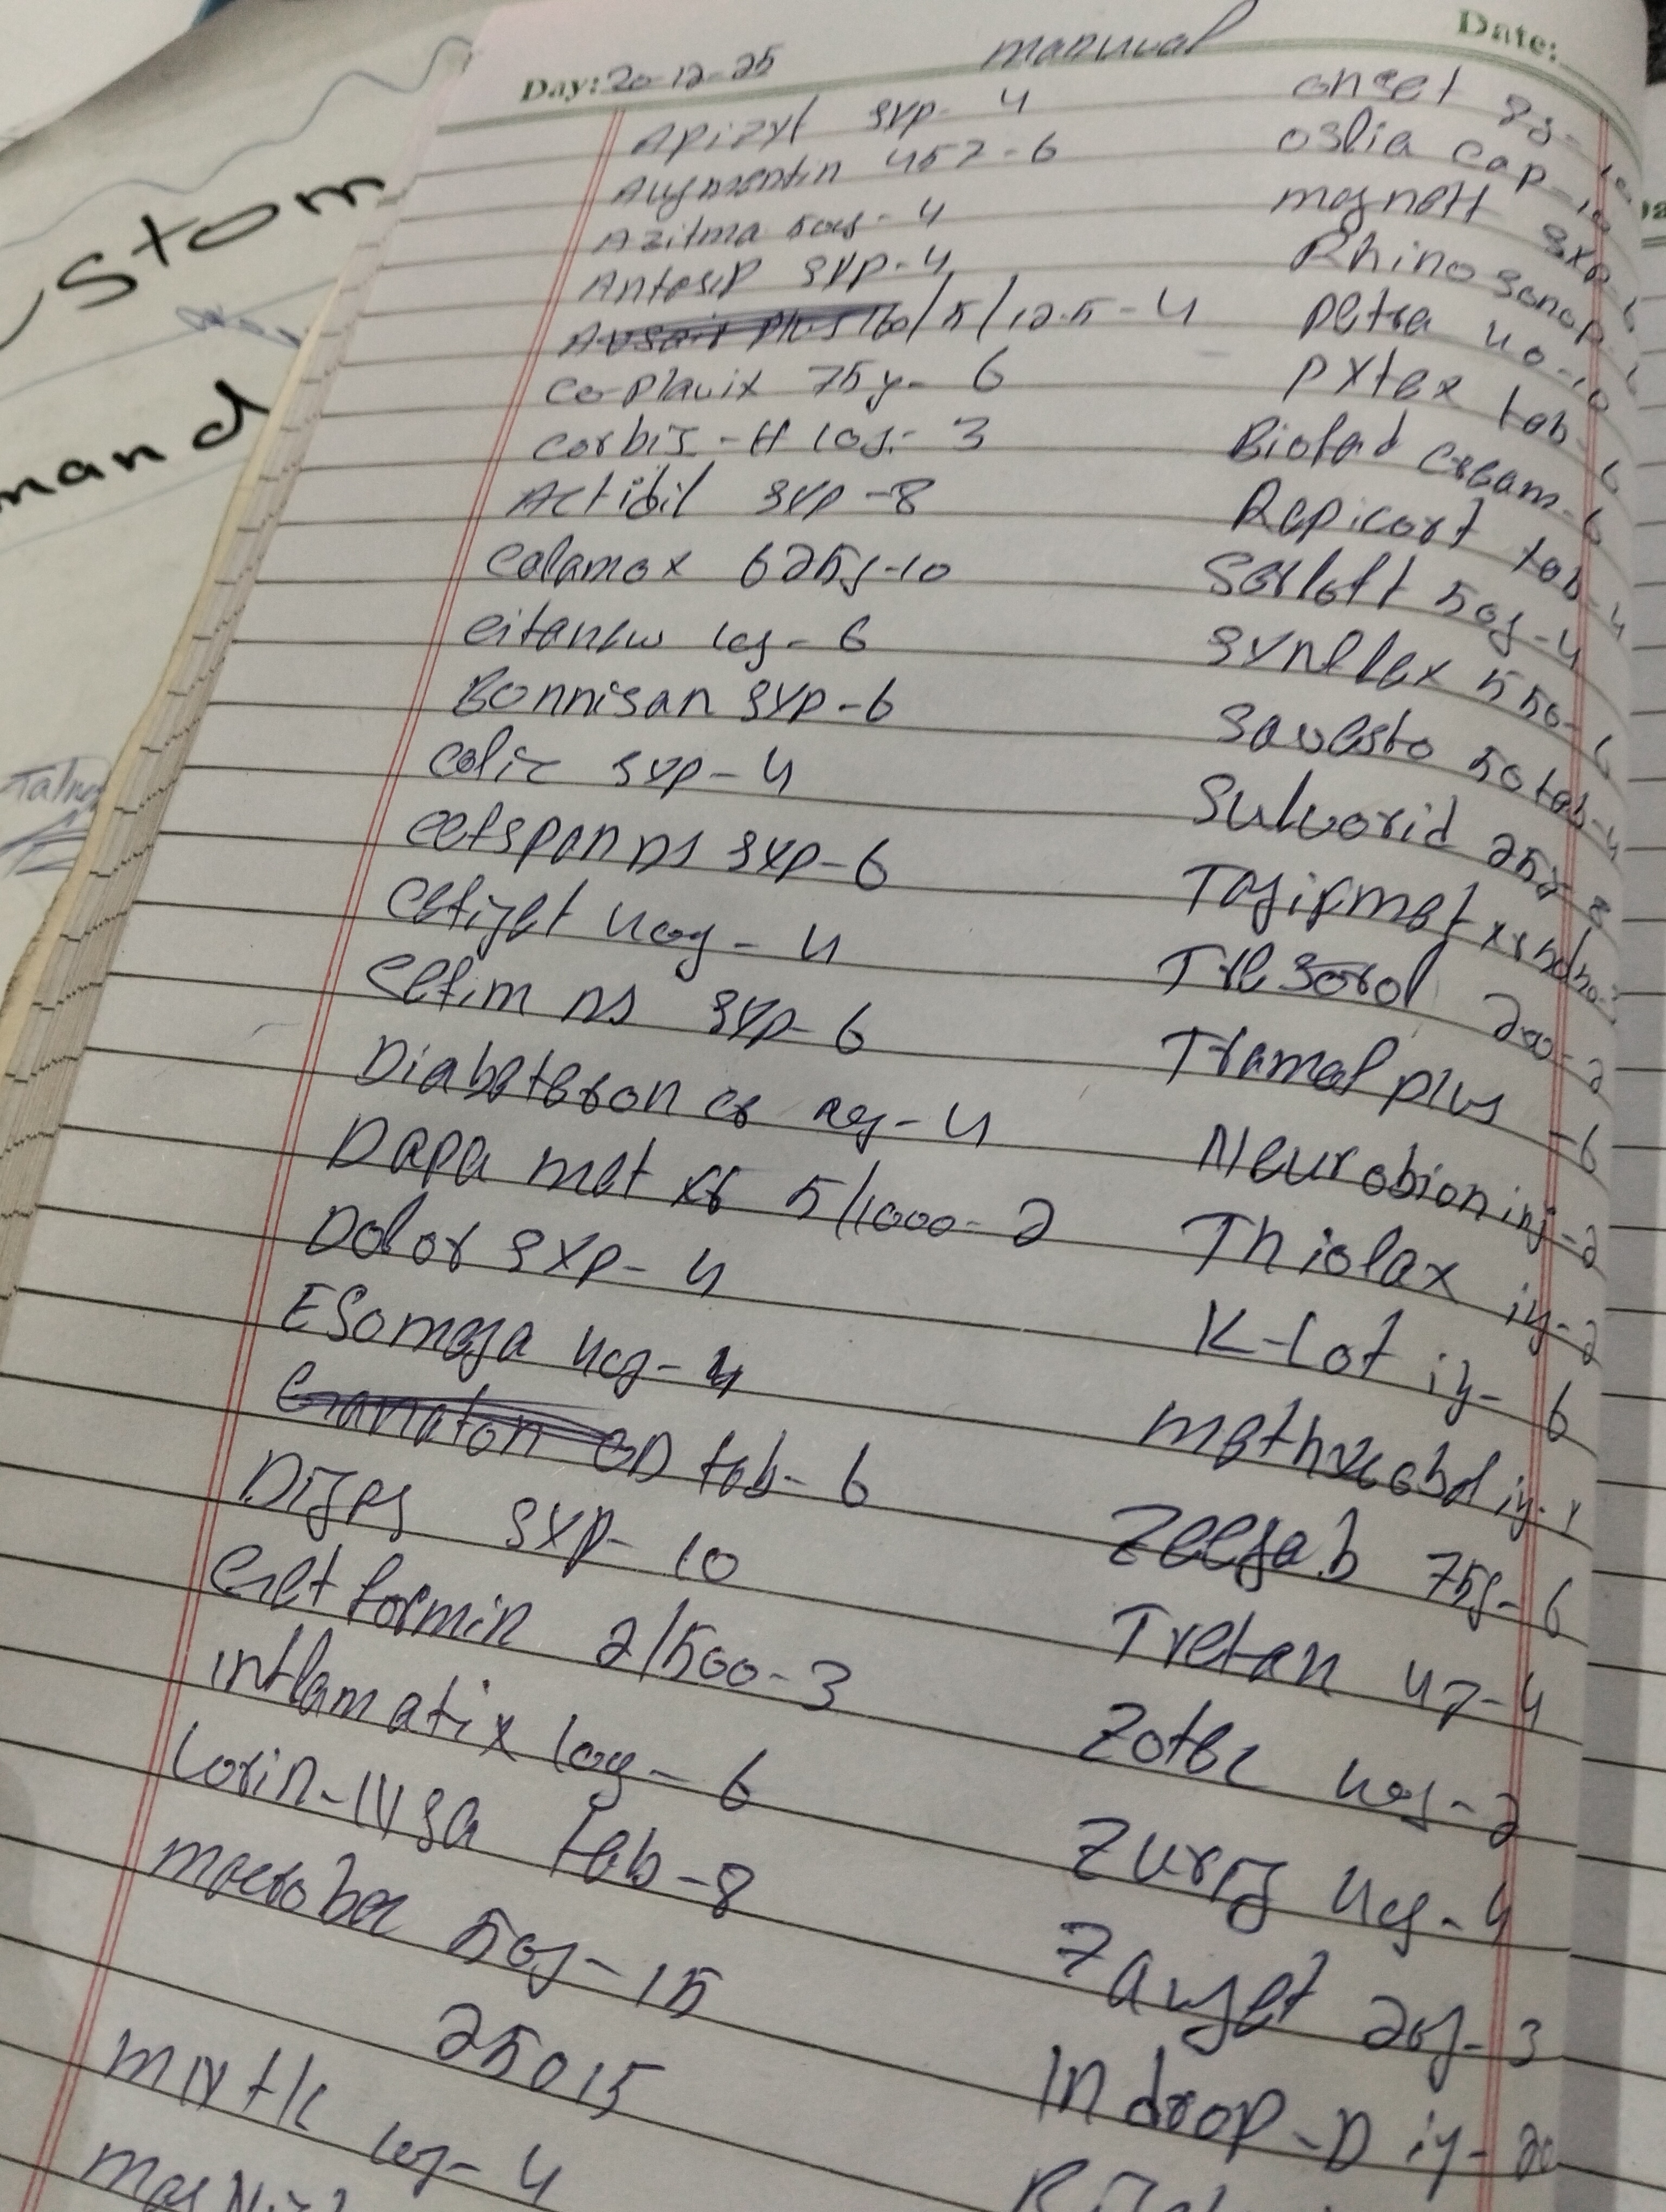 Day: 20-12-25
manual
Date:
Apizyt syp- 4
Augmentin 457-6
Azitma 50g- 4
Antesip syp-4
Avsair plus 160/5/12.5-4
Co-plavix 75g- 6
Corbis-H log- 3
Actidil syp-8
Calamox 625g-10
Citanew log- 6
Bonnisan syp-6
Colic syp-4
Cefspan DS syp-6
Cefiget 4og- 4
Cefim DS syp- 6
Diabeteron cr
Dapa met xr 5/1000-2
Dolor syp- 4
ESomega 4og- 4
Ganaton OD tab- 6
Dijes syp- 10
Getformin 2/500-3
inflamatix log- 6
Lorin-NSA tab-8
macrobac 50g-15
25015
log- 4
onset 8g-
oslia cap-10
magnett syp-
Rhinosonop
petra 40-10
pytex tab-6
Biofad cream-6
Repicort tab-4
Serloft 50g-4
Synflex 550-6
Savesto 50 tab-4
Sulvorid 25g-8
Tagipmet xr
Tresorol 200-2
Tramal plus -6
Neurobion inj-2
Thiolax ij-2
K-Lot ij- 6
methycobal ij-
Zeegab 75g-6
Trefan 47-4
Zotec 4og-2
Zurig 4og-4
Zauget 20g-3
Indrop-D ij-20
Stom
mand